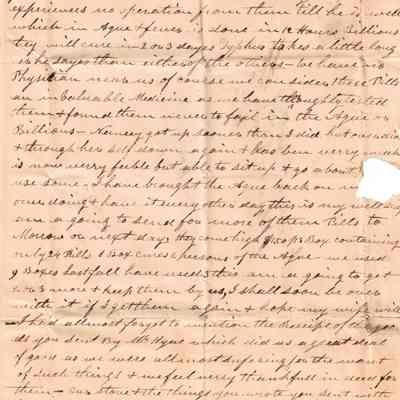 experiences no operation from them till he is well
which in Ague & fever is done in 12 Hours Billious
they will cure in 2 or 3 days Typhus takes a little long
in he says than either of the others - we have no
Physitian near us of course we consider these Pills
an invaluable Medicine as we have thoughly tested
them & found them never to fail in the Ague or
Billious - Nancy got up sooner than I did but
& through her self down again & has ben verry much
is now verry feeble but able to sit up & go about
use some. I have brought the Ague back on
over doing & have it every other day this is my well day
am a going to send for more of them Pills to
Morrow or next day they come high $1.50 pr Box containing
only 24 Pills 1 Box cures 2 persons of the Ague we used
9 Boxes last fall have used 5 this am a going to get
2 or 3 more & keep them by us, I shall soon be over
with it if I get them again & hope my wife will
I had allmost forgot to mention the Receipt of the
you sent By Mr which did us a great deal
of good as we were allmost sufering for the want
of such things & we feel verry thankfull in deed for
them - our stove & the things you wrote you sent with